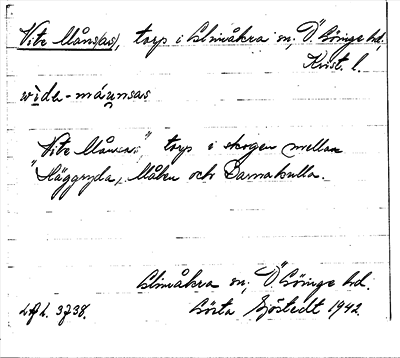 Vite Måns(as), torp i Glimåkra sn, Ö. Göinge hd,
Krist. l.
wìdə-måunsas
"Vite Månsas", torp i skogen mellan
Häggryda, Målen och Damakulla.
Glimåkra sn, Ö. Göinge hd.
LgL. 3738. Gösta Sjöstedt 1942